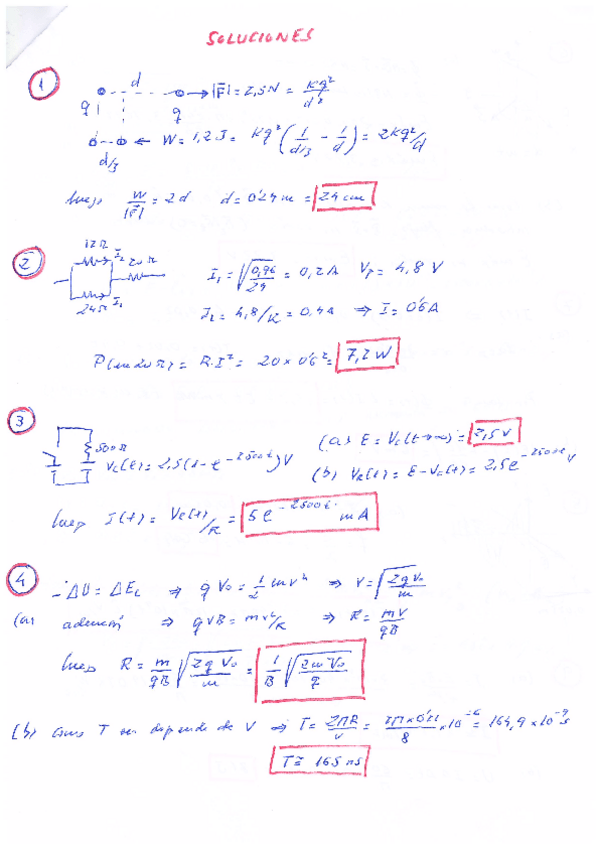 SOLUCIONES
1
d
q q → |F| = 2,5 N = kq²/d²
d/3 ← W = 1,2 J = kq² (1/d/3 - 1/d) = 2kq²/d
luego W/|F| = 2d d = 0'24 m = 24 cm
2
12 Ω I₂ 20 Ω
24 Ω I₁
I₁ = √0,96/24 = 0,2 A Vp = 4,8 V
I₂ = 4,8/R = 0,4 A ⇒ I = 0'6 A
P(en 20 Ω) = R·I² = 20 × 0'6² = 7,2 W
3
500 Ω
(a) E = Vc(t→∞) = 2,5 V
Vc(t) = 2,5(1 - e^-2500t) V
(b) VR(t) = E - Vc(t) = 2,5 e^-2500t V
luego I(t) = VR(t)/R = 5 e^-2500t mA
4
- ΔU = ΔEc ⇒ q V₀ = 1/2 mv² ⇒ v = √2qV₀/m
(a) además ⇒ qvB = mv²/R ⇒ R = mv/qB
luego R = m/qB √2qV₀/m = 1/B √2mV₀/q
(b) como T no depende de V ⇒ T = 2πR/v = 2π × 0'21/8 × 10⁻⁶ = 164,9 × 10⁻⁹ s
T ≅ 165 ns